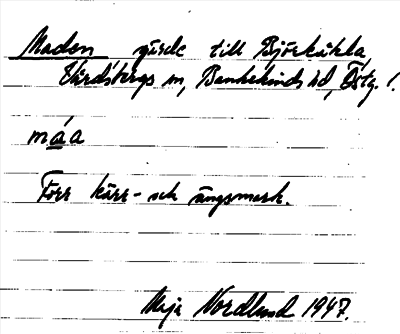 Maden gärde till Björkäkla,
Vårdsbergs sn, Bankekinds hd, Östg.
måa
Förr kärr- och ängsmark.
Maja Nordlund 1947.